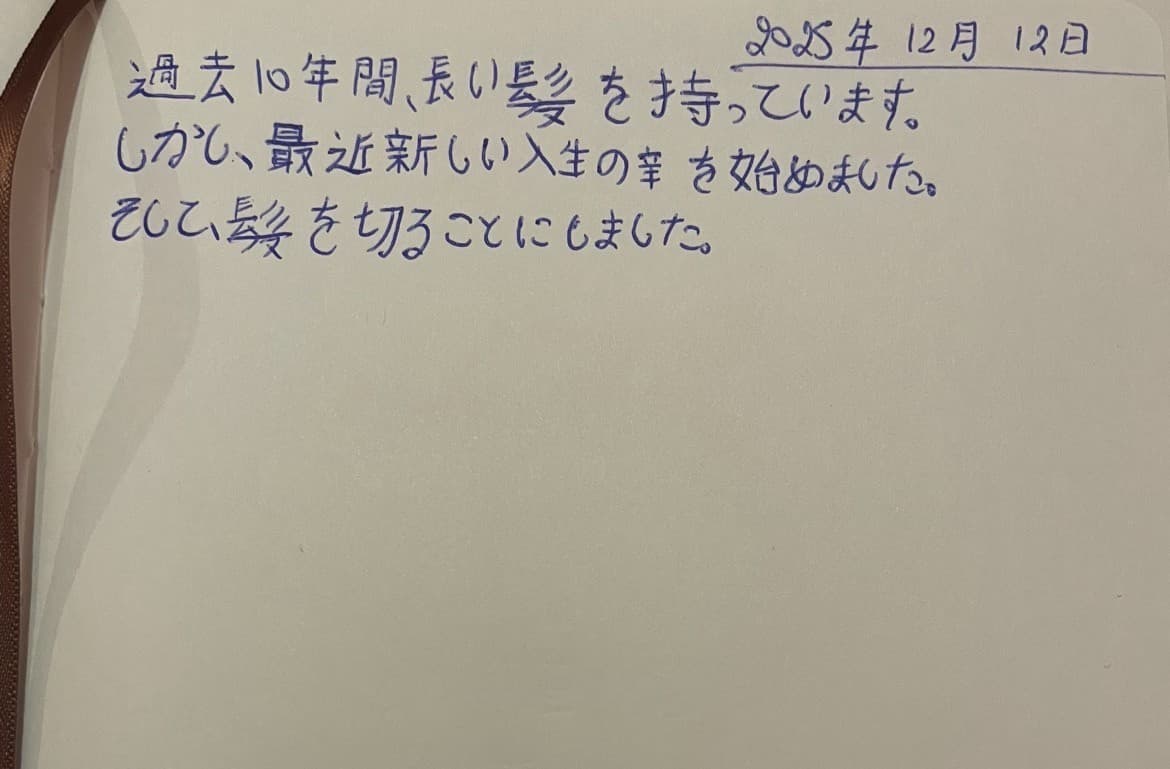 2025年 12月 12日
過去10年間、長い髪を持っています。
しかし、最近新しい人生の辛を始めました。
そして、髪を切ることにしました。